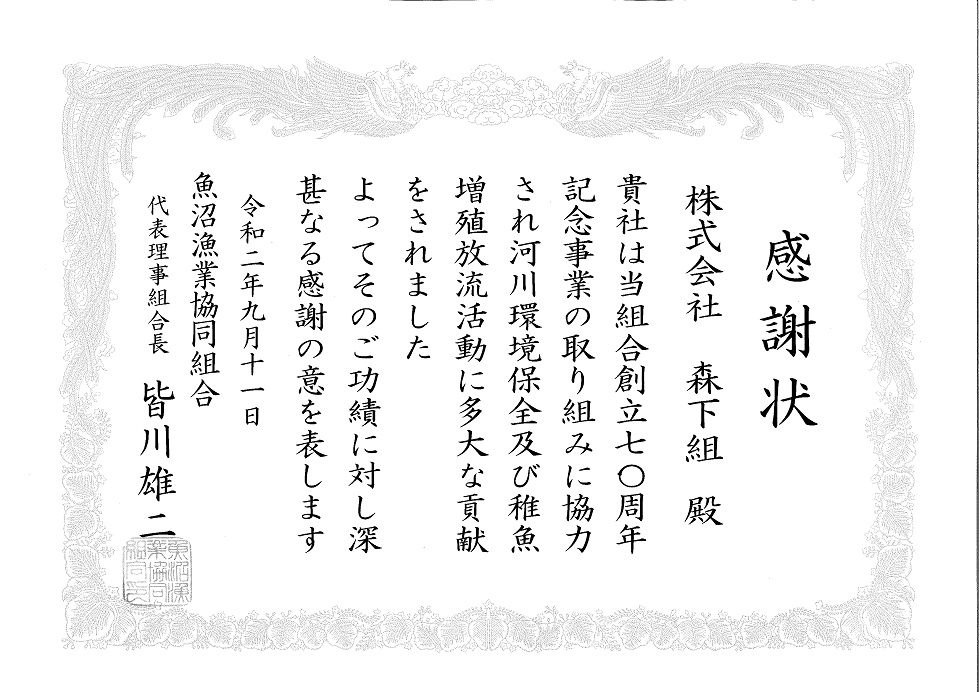 感謝状
株式会社 森下組 殿
貴社は当組合創立七〇周年
記念事業の取り組みに協力
され河川環境保全及び稚魚
増殖放流活動に多大な貢献
をされました
よってそのご功績に対し深
甚なる感謝の意を表します
令和二年九月十一日
魚沼漁業協同組合
代表理事組合長 皆川雄二
魚沼漁
業協同
組合